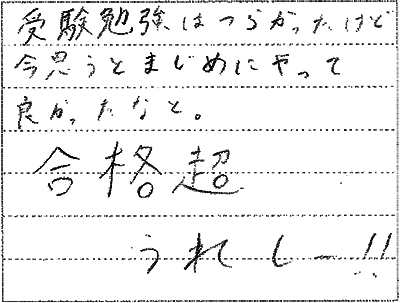 受験勉強はつらかったけど
今思うとまじめにやって
良かったなと。
合格超
うれしー!!